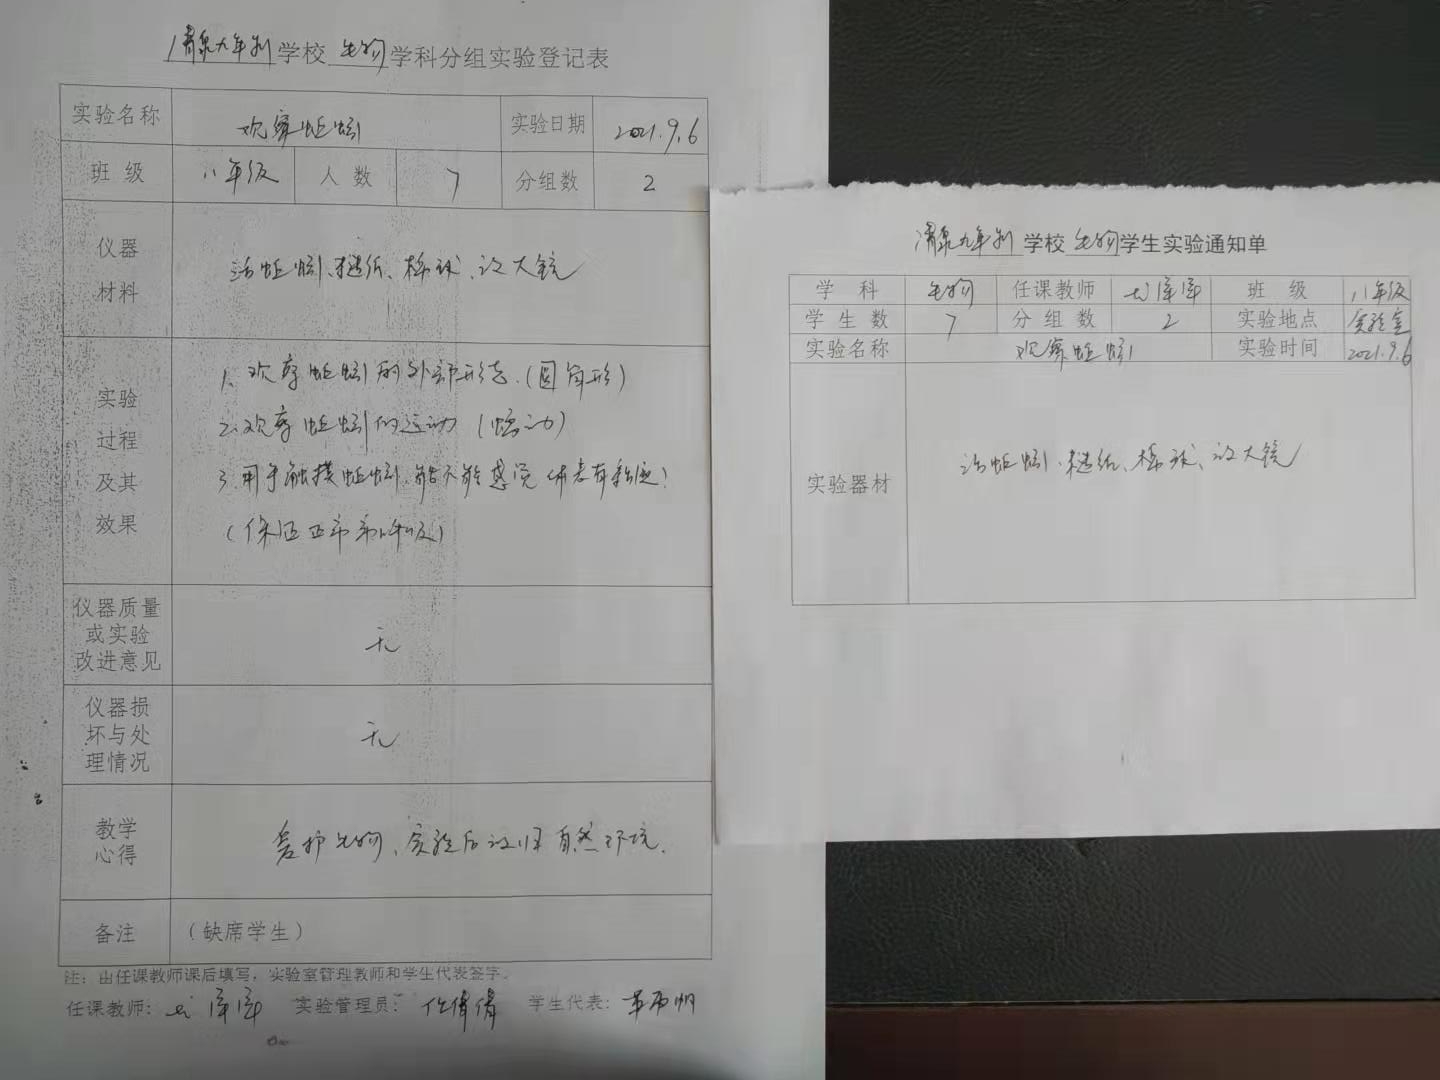 清泉九年制学校 生物学科分组实验登记表
实验名称 观察蚯蚓 实验日期 2021.9.6
班 级 八年级 人 数 7 分组数 2
仪器
材料
活蚯蚓、糙纸、棉球、放大镜
实验
过程
及其
效果
1、观察蚯蚓的外部形态.(圆筒形)
2.观察蚯蚓的运动(蠕动)
3.用手触摸蚯蚓.能不能感觉体表有粘液?
(保证正常呼吸)
仪器质量
或实验
改进意见
无
仪器损
坏与处
理情况
无
教学
心得
爱护生物、实验后放归自然环境.
备注 (缺席学生)
注：由任课教师课后填写，实验室管理教师和学生代表签字。
任课教师： 实验管理员： 倩倩 学生代表：
清泉九年制 学校 生物学生实验通知单
学 科 生物 任课教师 班 级 八年级
学 生 数 7 分 组 数 2 实验地点 实验室
实验名称 观察蚯蚓 实验时间 2021.9.6
实验器材 活蚯蚓、糙纸、棉球、放大镜